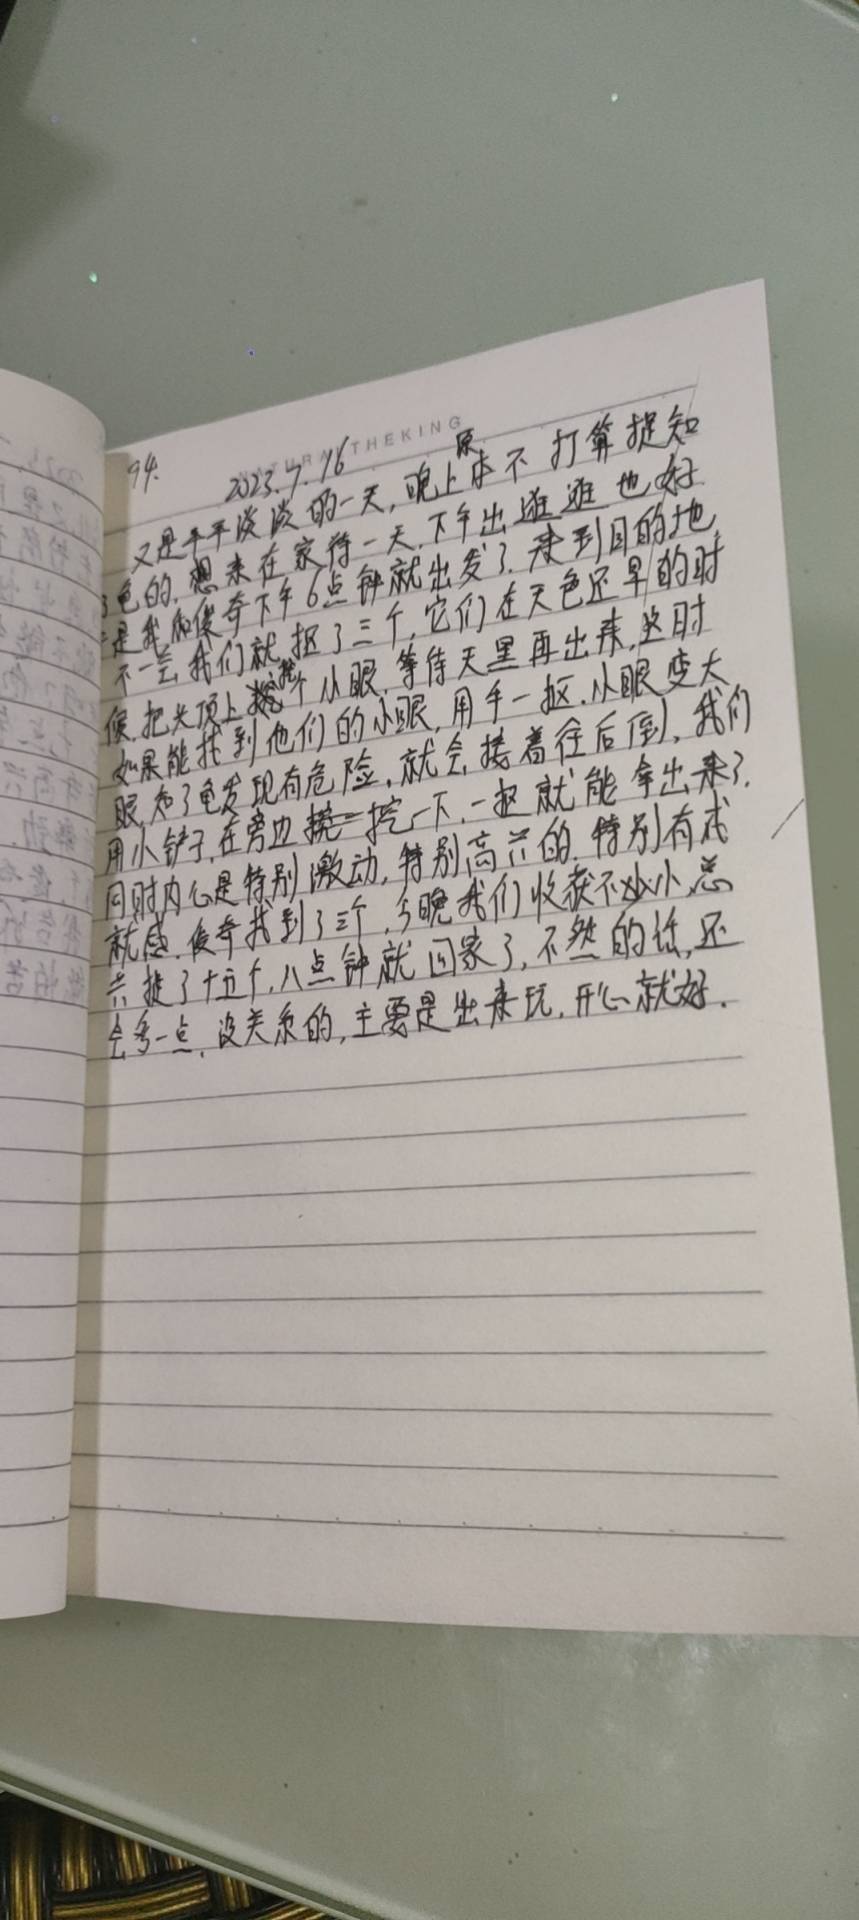 THEKING
94. 2023.7.16
又是平平淡淡的一天,晚上原本不打算捉知
了龟的,想来在家待一天,下午出逛逛也好
是我和俊奇下午6点钟就出发了,来到目的地,
不一会,我们就抠了三个,它们在天色还早的时
候,把头顶上挖个小眼,等待天黑再出来,这时
如果能找到他们的小眼,用手一抠,小眼变大
眼,知了龟发现有危险,就会接着往后倒,我们
用小铲子,在旁边挖一下,一抠就能拿出来了.
同时内心是特别激动,特别高兴的,特别有成
就感,俊奇找到了三个,今晚我们收获不小,总
共捉了十五个,八点钟就回家了,不然的话,还
会多一点,没关系的,主要是出来玩,开心就好.